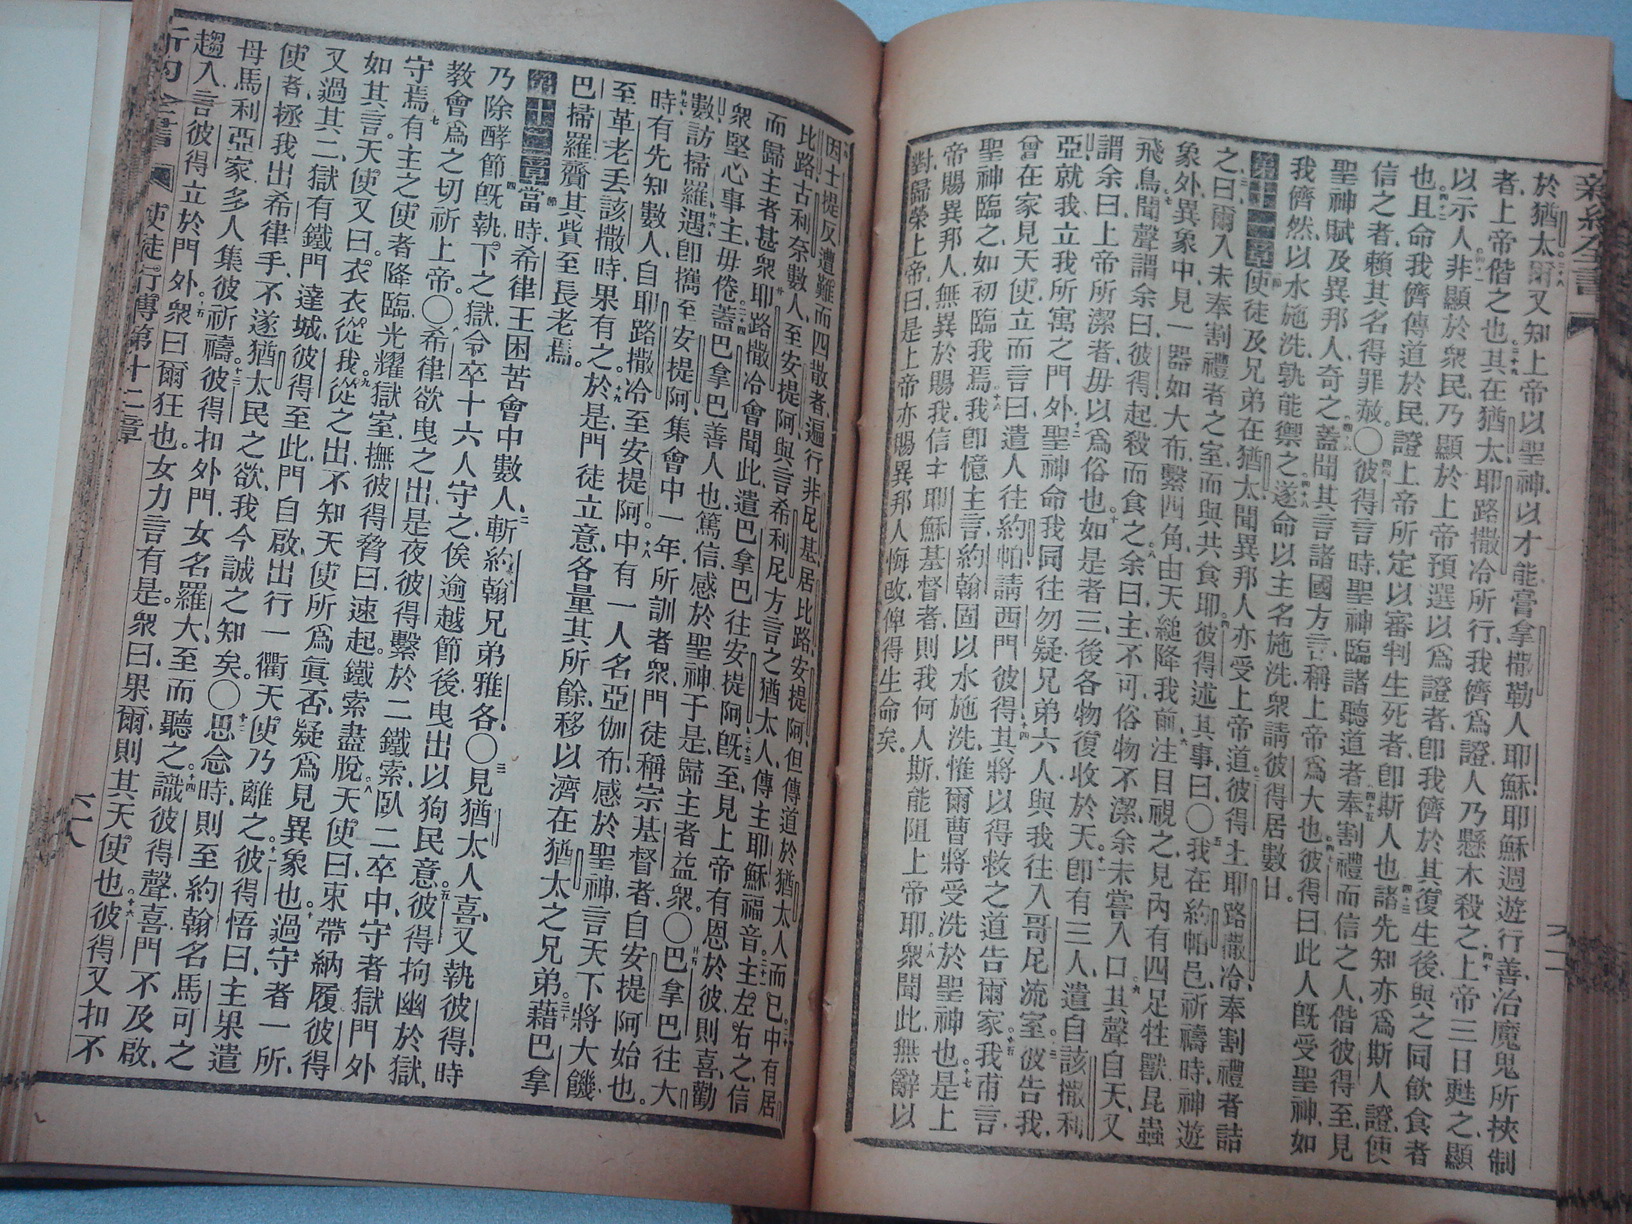 於猶太爾又知上帝以聖神以才能膏拿撒勒人耶穌耶穌週遊行善治魔鬼所挾制
者上帝偕之也其在猶太耶路撒冷所行我儕爲證人乃懸木殺之上帝三日甦之顯
以示人非顯於衆民乃顯於上帝預選以爲證者卽我儕於其復生後與之同飲食者
也且命我儕傳道於民證上帝所定以審判生死者卽斯人也諸先知亦爲斯人證使
信之者賴其名得罪赦〇彼得言時聖神臨諸聽道者奉割禮而信之人偕彼得至見
聖神賦及異邦人奇之蓋聞其言諸國方言稱上帝爲大也彼得曰此人旣受聖神如
我儕然以水施洗孰能禦之遂命以主名施洗衆請彼得居數日
第十一章使徒及兄弟在猶太聞異邦人亦受上帝道彼得上耶路撒冷奉割禮者詰
之曰爾入未奉割禮者之室而與共食卽彼得述其事曰〇我在約帕邑祈禱時神遊
象外異象中見一器如大布繫四角由天縋降我前注目視之見內有四足牲獸昆蟲
飛鳥聞聲謂余曰彼得起殺而食之余曰主不可俗物不潔余未嘗入口其聲自天又
謂余曰上帝所潔者毋以爲俗也如是者三後各物復收於天卽有三人遣自該撒利
亞就我立我所寓之門外聖神命我同往勿疑兄弟六人與我往入哥尼流室彼告我
曾在家見天使立而言曰遣人往約帕請西門彼得其將以得救之道告爾家我甫言
聖神臨之如初臨我焉我卽憶主言約翰固以水施洗惟爾曹將受洗於聖神也是上
帝賜異邦人無異於賜我信主耶穌基督者則我何人斯能阻上帝耶衆聞此無辭以
對歸榮上帝曰是上帝亦賜異邦人悔改俾得生命矣
因士提反遭難而四散者遍行非尼基居比路安提阿但傳道於猶太人而已中有居
比路古利奈數人至安提阿與言希利尼方言之猶太人傳主耶穌福音主左右之信
而歸主者甚衆耶路撒冷會聞此遣巴拿巴往安提阿旣至見上帝有恩於彼則喜勸
衆堅心事主毋倦蓋巴拿巴善人也篤信感於聖神于是歸主者益衆〇巴拿巴往大
數訪掃羅遇卽攜至安提阿集會中一年所訓者衆門徒稱宗基督者自安提阿始也
時有先知數人自耶路撒冷至安提阿中有一人名亞伽布感於聖神言天下將大饑
至革老丟該撒時果有之於是門徒立意各量其所餘移以濟在猶太之兄弟藉巴拿
巴掃羅齎其貲至長老焉
第十二章當時希律王困苦會中數人斬約翰兄弟雅各〇見猶太人喜又執彼得時
乃除酵節旣執下之獄令卒十六人守之俟逾越節後曳出以狥民意彼得拘幽於獄
教會爲之切祈上帝〇希律欲曳之出是夜彼得繫於二鐵索臥二卒中守者獄門外
守焉有主之使者降臨光耀獄室撫彼得脅曰速起鐵索盡脫天使曰束帶納履彼得
如其言天使又曰衣衣從我從之出不知天使所爲眞否疑爲見異象也過守者一所
又過其二獄有鐵門達城彼得至此門自啟出行一衢天使乃離之彼得悟曰主果遣
使者拯我出希律手不遂猶太民之欲我今誠之知矣〇思念時則至約翰名馬可之
母馬利亞家多人集彼祈禱彼得扣外門女名羅大至而聽之識彼得聲喜門不及啟
趨入言彼得立於門外衆曰爾狂也女力言有是衆曰果爾則其天使也彼得又扣不
使徒行傳第十二章
六八